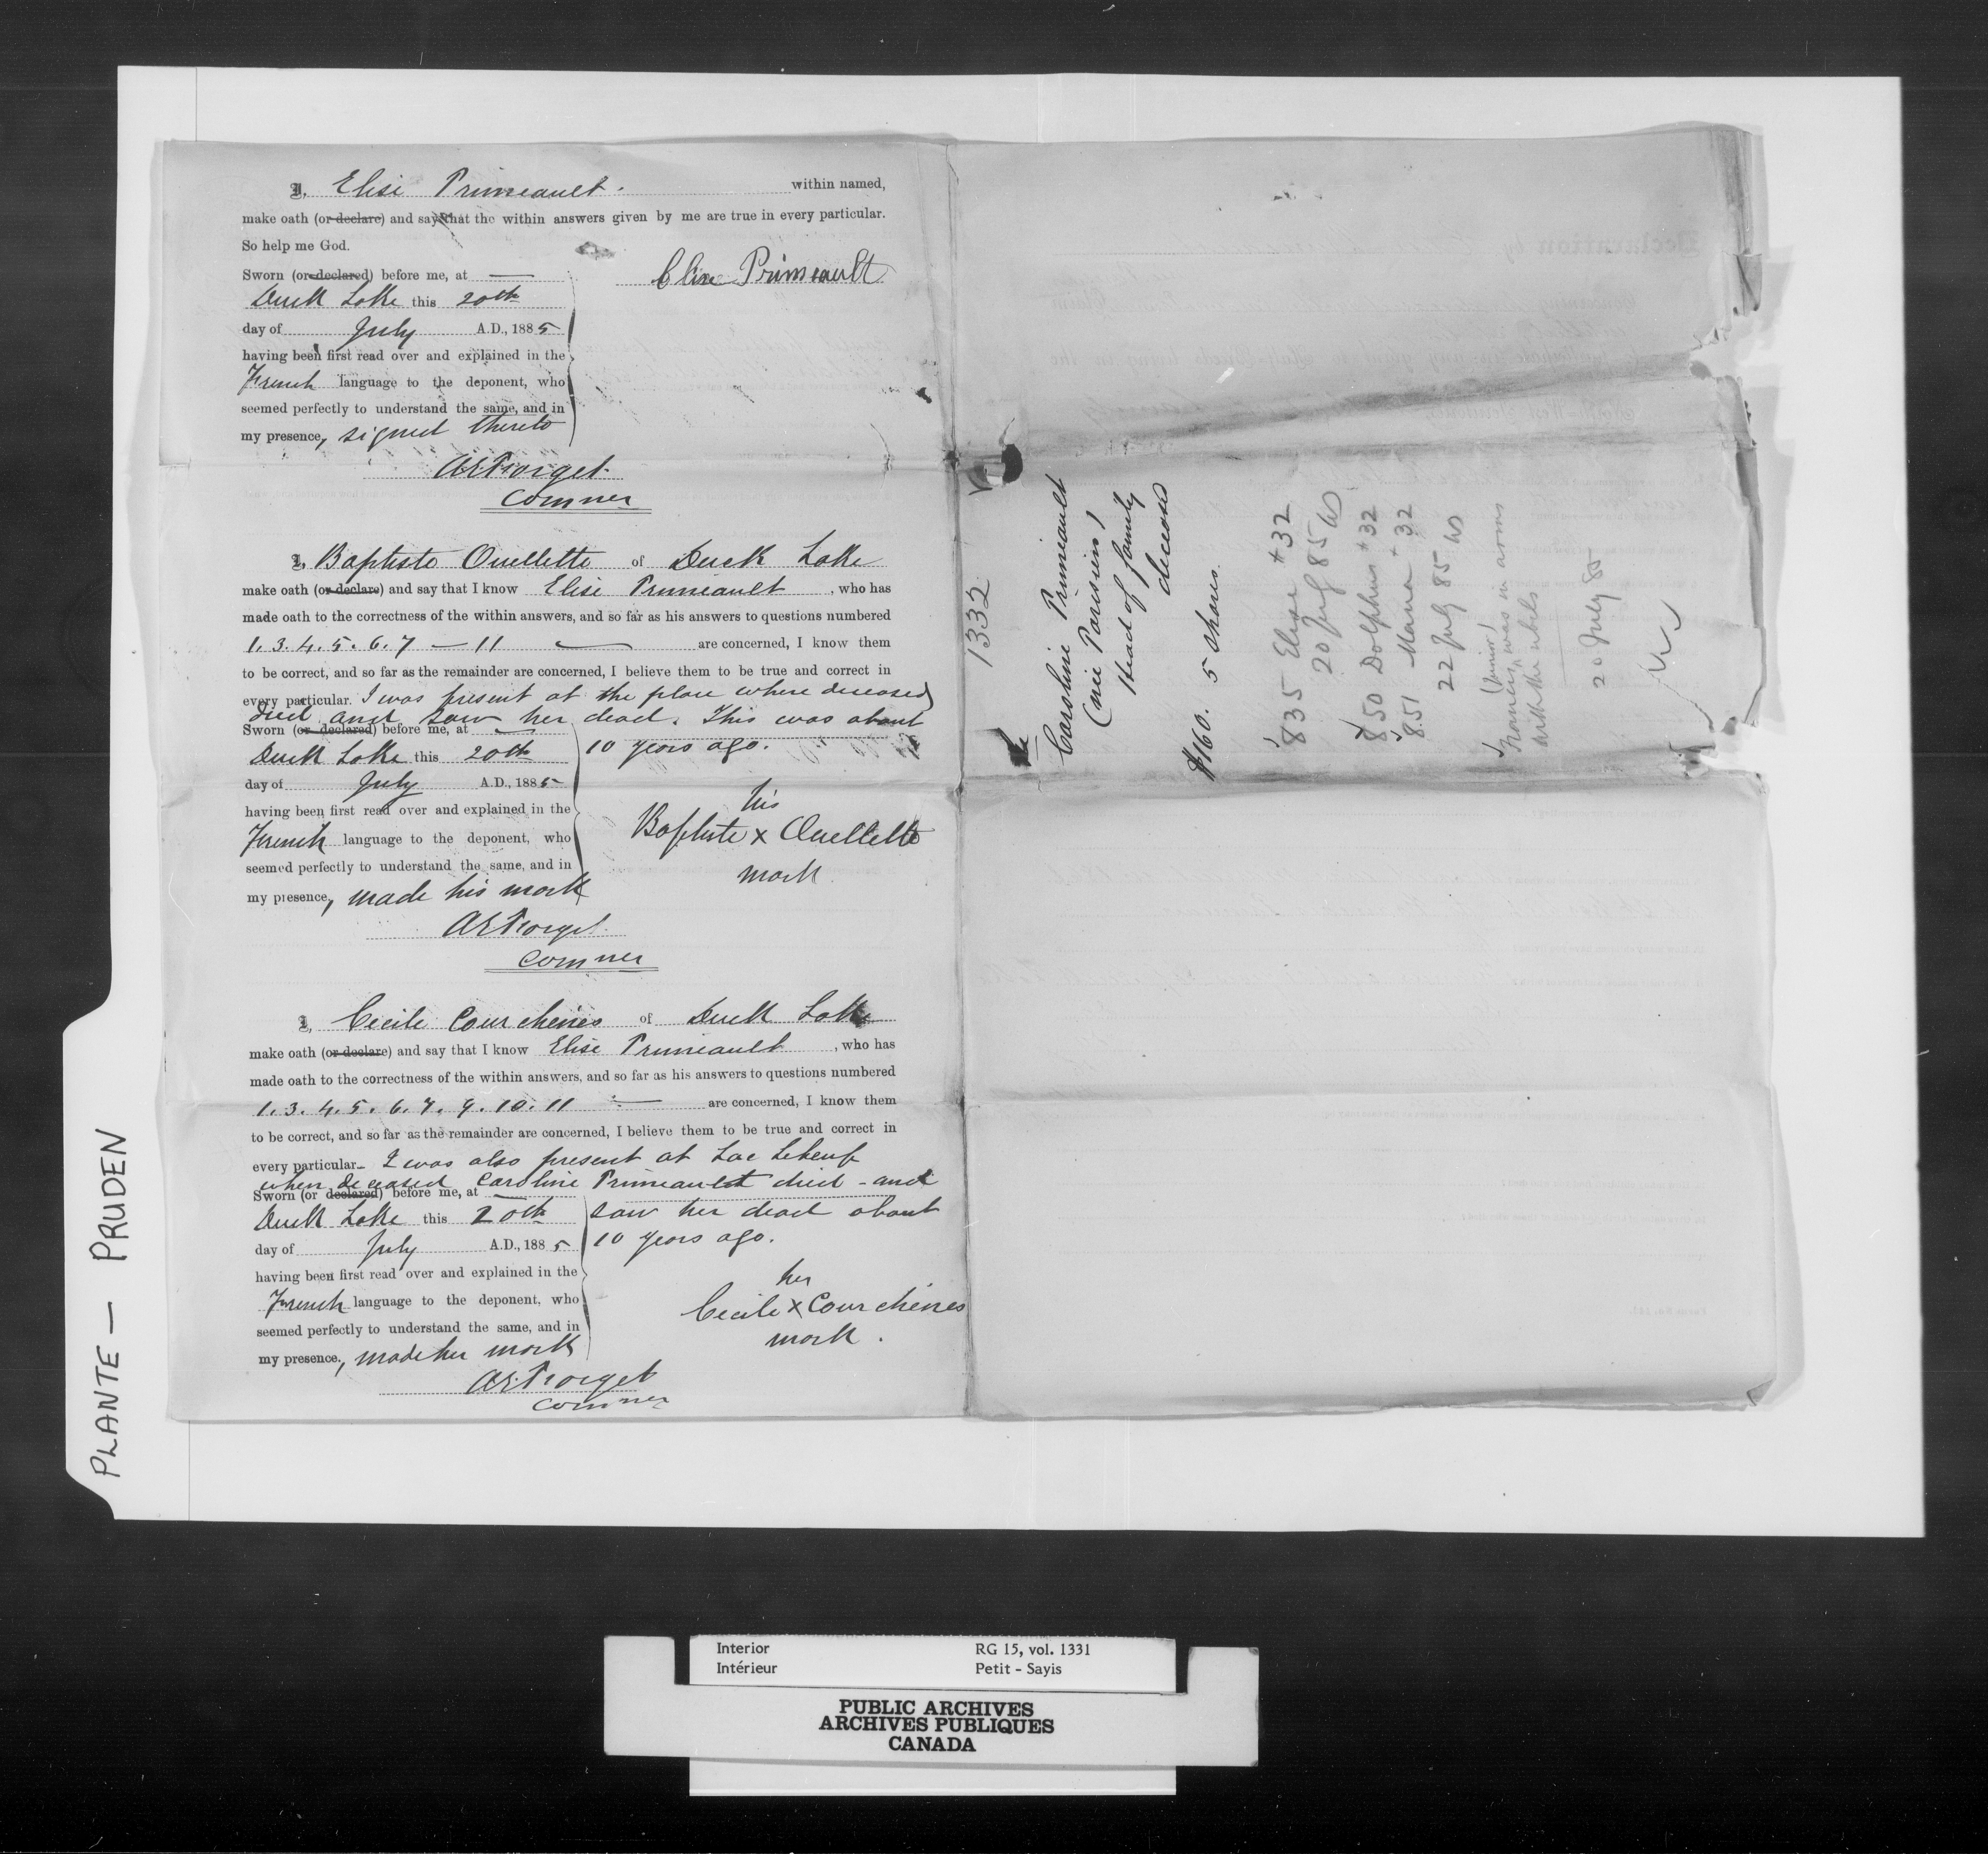 I, Elise Primeault. within named,
make oath (or declare) and say that the within answers given by me are true in every particular.
So help me God.
Sworn (or declared) before me, at —
Duck Lake this 20th
day of July A.D., 1885
having been first read over and explained in the
French language to the deponent, who
seemed perfectly to understand the same, and in
my presence, signed thereto
Elise Primeault
AEForget
Commer
I, Baptiste Ouellette of Duck Lake
make oath (or declare) and say that I know Elise Primeault, who has
made oath to the correctness of the within answers, and so far as his answers to questions numbered
1. 3. 4. 5. 6. 7 — 11 — are concerned, I know them
to be correct, and so far as the remainder are concerned, I believe them to be true and correct in
every particular. I was present at the place where deceased
died and saw her dead. This was about
10 years ago.
Sworn (or declared) before me, at —
Duck Lake this 20th
day of July A.D., 1885
having been first read over and explained in the
French language to the deponent, who
seemed perfectly to understand the same, and in
my presence, made his mark
his
Baptiste x Ouellette
mark
AEForget
Commer
I, Cecile Courchênes of Duck Lake
make oath (or declare) and say that I know Elise Primeault, who has
made oath to the correctness of the within answers, and so far as his answers to questions numbered
1. 3. 4. 5. 6. 7. 9. 10. 11 — are concerned, I know them
to be correct, and so far as the remainder are concerned, I believe them to be true and correct in
every particular. I was also present at Lac Lebeuf
when deceased Caroline Primeault died - and
saw her dead about
10 years ago.
Sworn (or declared) before me, at —
Duck Lake this 20th
day of July A.D., 1885
having been first read over and explained in the
French language to the deponent, who
seemed perfectly to understand the same, and in
my presence, made her mark
her
Cecile x Courchênes
mark.
AEForget
Commer
1332
Caroline Primeault
(née Parisien)
Head of family
deceased
$160. 5 shares.
835 Elise *32
20 July 85
850 Dolphus *32
851 Maria *32
22 July 85
(Junior)
Francis, was in arms
with the rebels
20 July 85
PLANTE — PRUDEN
Interior RG 15, vol. 1331
Intérieur Petit - Sayis
PUBLIC ARCHIVES
ARCHIVES PUBLIQUES
CANADA